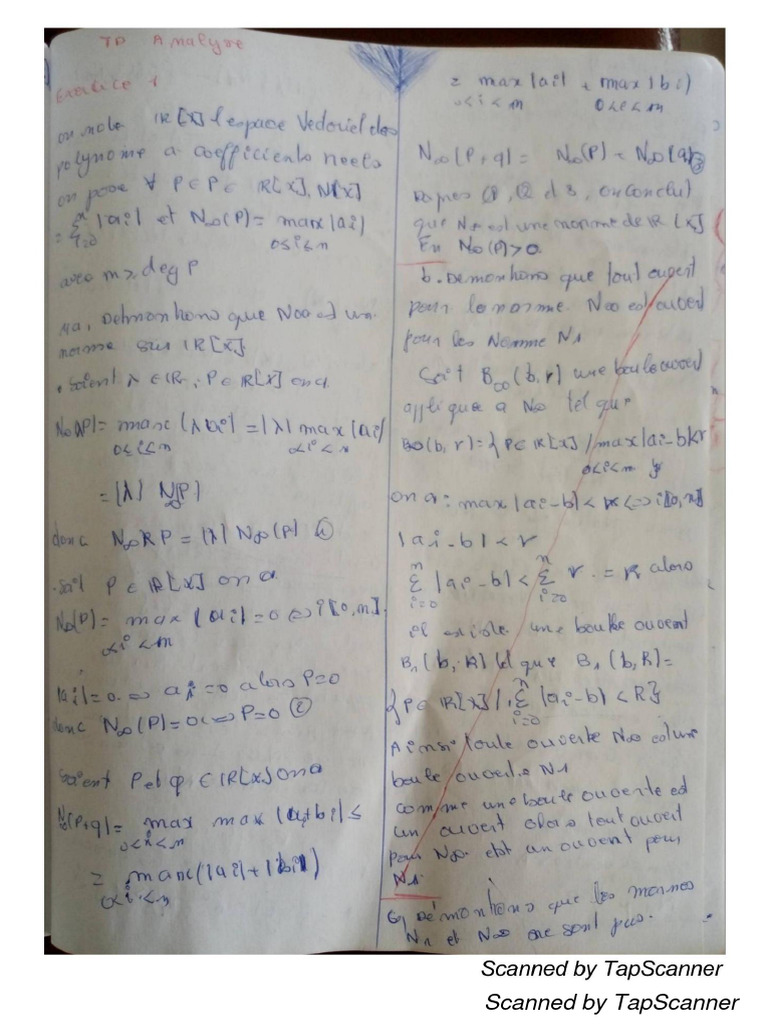 TD Analyse
Exercice 1
on note IR[X] l'espace Vectoriel des
polynome a coefficients neels
on pose ∀ P∈P∈ IR[X], N[X]
= Σ_{i=0}^{n} |ai| et N∞(P) = max|ai|
0≤i≤n
avec n≥ deg P
1a, Detmontrons que N∞ est un
norme sur IR[X]
. Soient λ ∈ IR, P∈ IR[X] on a
N∞(λP) = max |λai| = |λ| max |ai|
0≤i≤n 0<i<n
= |λ| N∞(P)
donc N∞λP = |λ| N∞(P) ①
. Soit P∈ IR[X] on a
N∞(P) = max |ai| = 0 ⇔ i[0,n].
0<i<n
|ai| = 0. ⇔ ai = 0 alors P=0
donc N∞(P)=0 ⇔ P=0 ②
Soient P et q ∈ IR[X] on a
N∞(P+q) = max max |ai+bi| ≤
0<i<n
= max(|ai|+|bi|)
0<i<n
= max|ai| + max|bi|
0<i<n 0<i<n
N∞(P+q) = N∞(P) + N∞(q) ③
Dapres (1, (2 et 3, on conclut
que N∞ est une norme de IR[X]
En N∞(P)>0
b. Demontrons que tout ouvert
pour la norme N∞ est ouvert
pour les Nomme N1
Soit B∞(b,r) une boule ouvert
appliquee a N∞ tel que
B∞(b,r) = {P∈ IR[X] / max|ai-b|<r
0<i<n }
on a : max|ai-b| < r ⇔ i[0,n]
|ai-b| < r
Σ_{i=0}^{n} |ai-b| < Σ_{i=0}^{n} r . = R alors
il existe une boule ouvert
B1(b,R) tel que B1(b,R) =
{P∈ IR[X] /, Σ_{i=0}^{n} |ai-b| < R}
Ainsi toute ouverte N∞ est une
boule ouverte N1
comme une boule ouverte est
un ouvert alors tout ouvert
pour N∞ est un ouvert pour
N1.
c, Démontrons que les normes
N1 et N∞ ne sont pas.
Scanned by TapScanner
Scanned by TapScanner